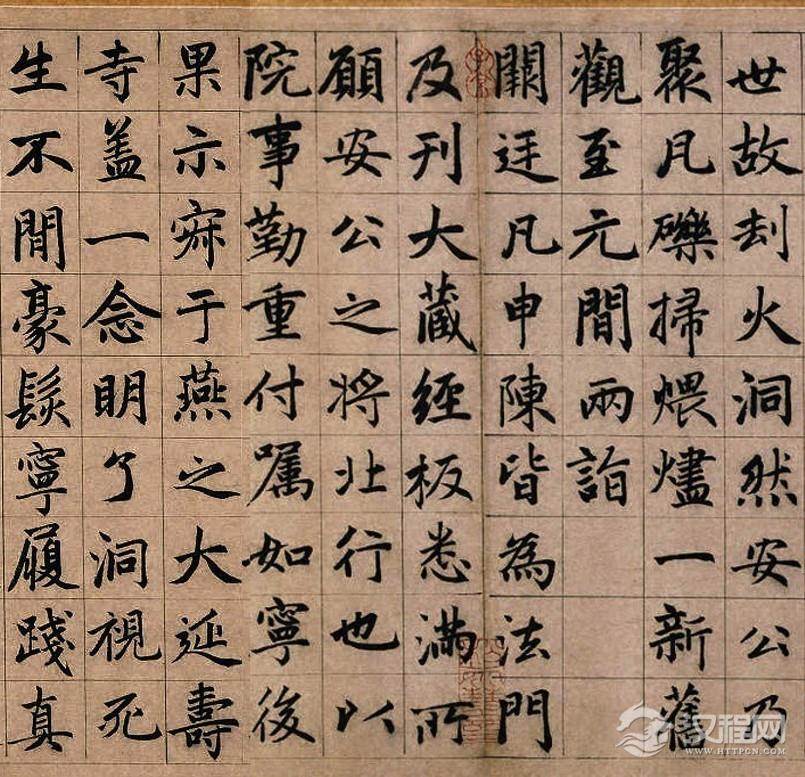 世故刦火洞然安公乃
聚瓦礫掃煨燼一新舊
觀至元間兩詣
闕廷凡申陳皆為法門
及刊大藏經板悉滿所
願安公之將北行也以
院事勤重付囑如寧後
果示寂于燕之大延壽
寺蓋一念明了洞視死
生不間豪髮寧履踐真
汉程网
WWW.HTTPCN.COM